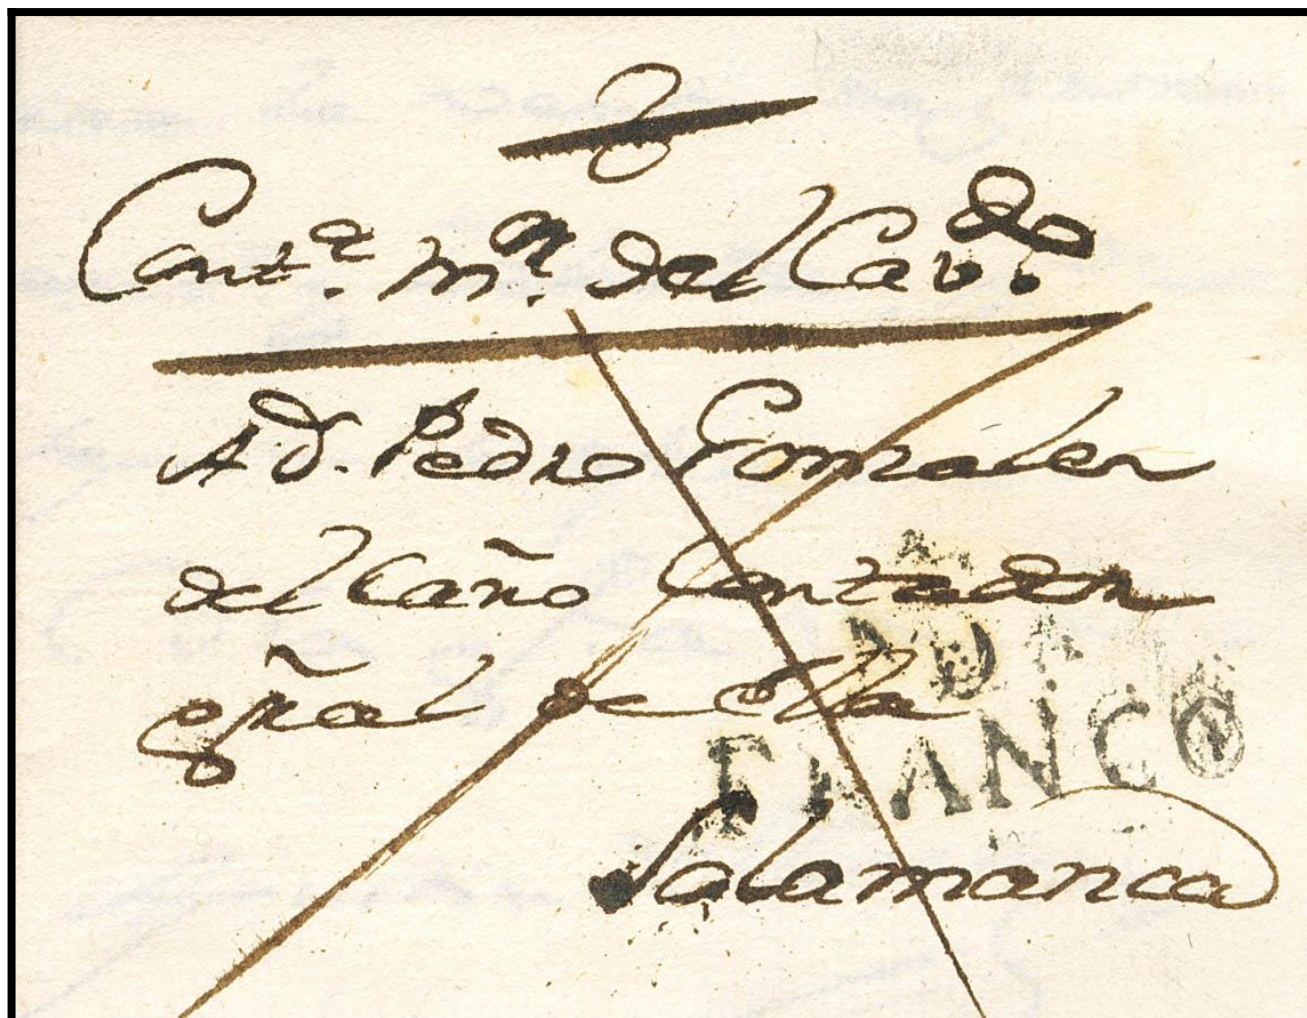 Cont.ª m.ª del Cav.do
A D. Pedro Gonzalez
del Caño Contador
gñal de Ella
FRANCO
Salamanca